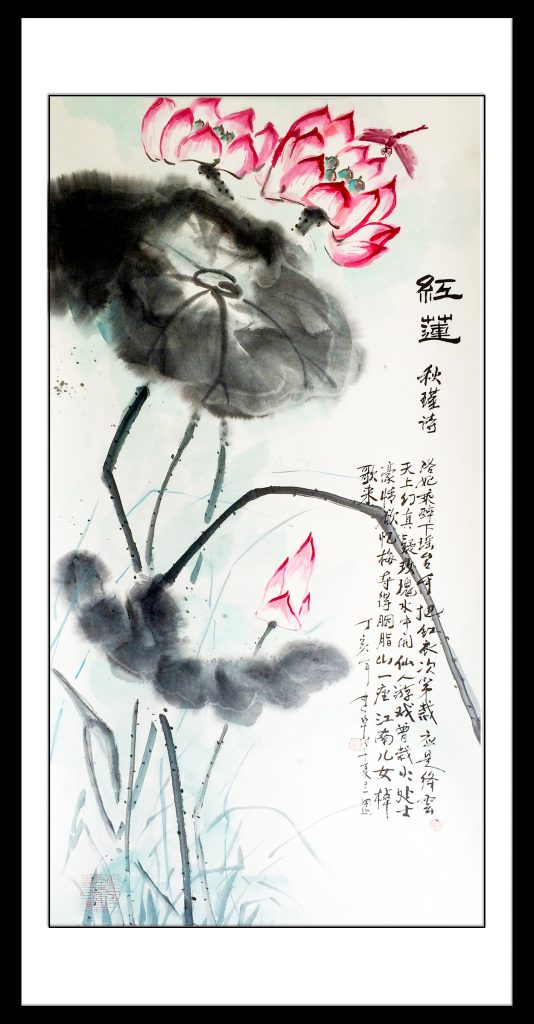 紅蓮
秋瑾诗
洛妃乘醉下瑶台手挹红衣次第裁应是绛雲
天上幻真疑玫瑰水中闹仙人游戏曾栽火处士
豪情欲忆梅夺得胭脂山一座江南儿女棹
歌来
丁亥年